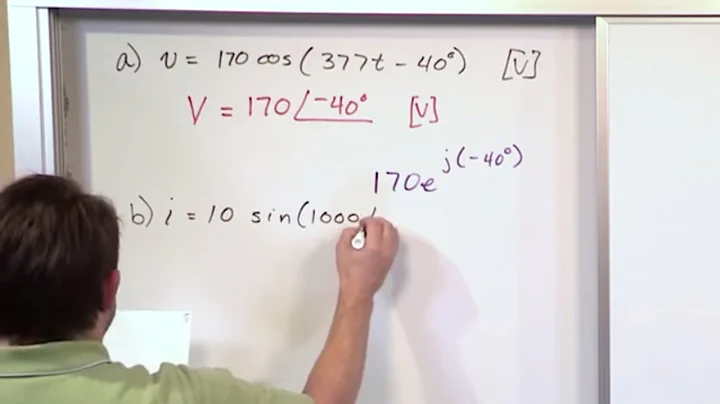 a) v = 170 cos (377t - 40°) [V]
V = 170∠-40° [V]
170e^j(-40°)
b) i = 10 sin(1000